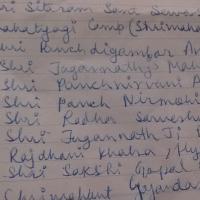 ri Sitaram Sant Sewas
mahatyagi Camp (Shrimaha
huri Panchdigambar An
Shri Jagannathji Mah
Shri Punchnirvani A
Shri Panch Nirmohi
Shri Radha Sarveshw
Shri Jugannath Ji
Rajdhani Khalsa, Hy
Shri Sakshi Gopal
Shrimahant Gajendra